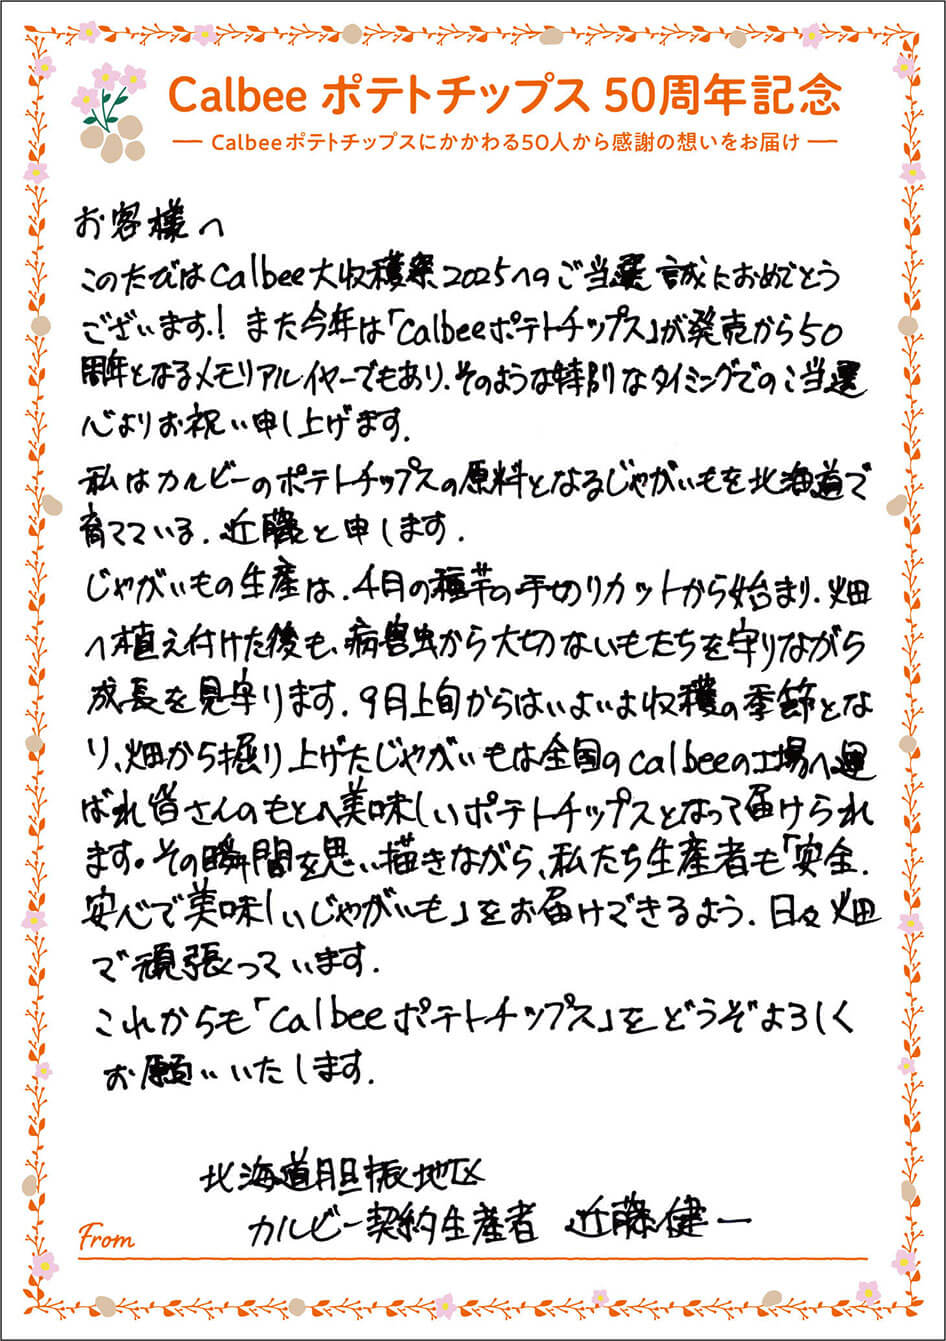 Calbee ポテトチップス 50周年記念
Calbeeポテトチップスにかかわる50人から感謝の想いをお届け
お客様へ
このたびはCalbee大収穫祭2025へのご当選誠におめでとう
ございます！また今年は「Calbeeポテトチップス」が発売から50
周年となるメモリアルイヤーでもあり、そのような特別なタイミングでのご当選
心よりお祝い申し上げます。
私はカルビーのポテトチップスの原料となるじゃがいもを北海道で
育てている、近藤と申します。
じゃがいもの生産は、4月の種芋の手切りカットから始まり、畑
へ植え付けた後も、病害虫から大切ないもたちを守りながら
成長を見守ります。9月上旬からはいよいよ収穫の季節とな
り、畑から掘り上げたじゃがいもは全国のCalbeeの工場へ運
ばれ皆さんのもとへ美味しいポテトチップスとなって届けられ
ます。その瞬間を思い描きながら、私たち生産者も「安全・
安心で美味しいじゃがいも」をお届けできるよう、日々畑
で頑張っています。
これからも「Calbeeポテトチップス」をどうぞよろしく
お願いいたします。
北海道胆振地区
カルビー契約生産者 近藤健一
From